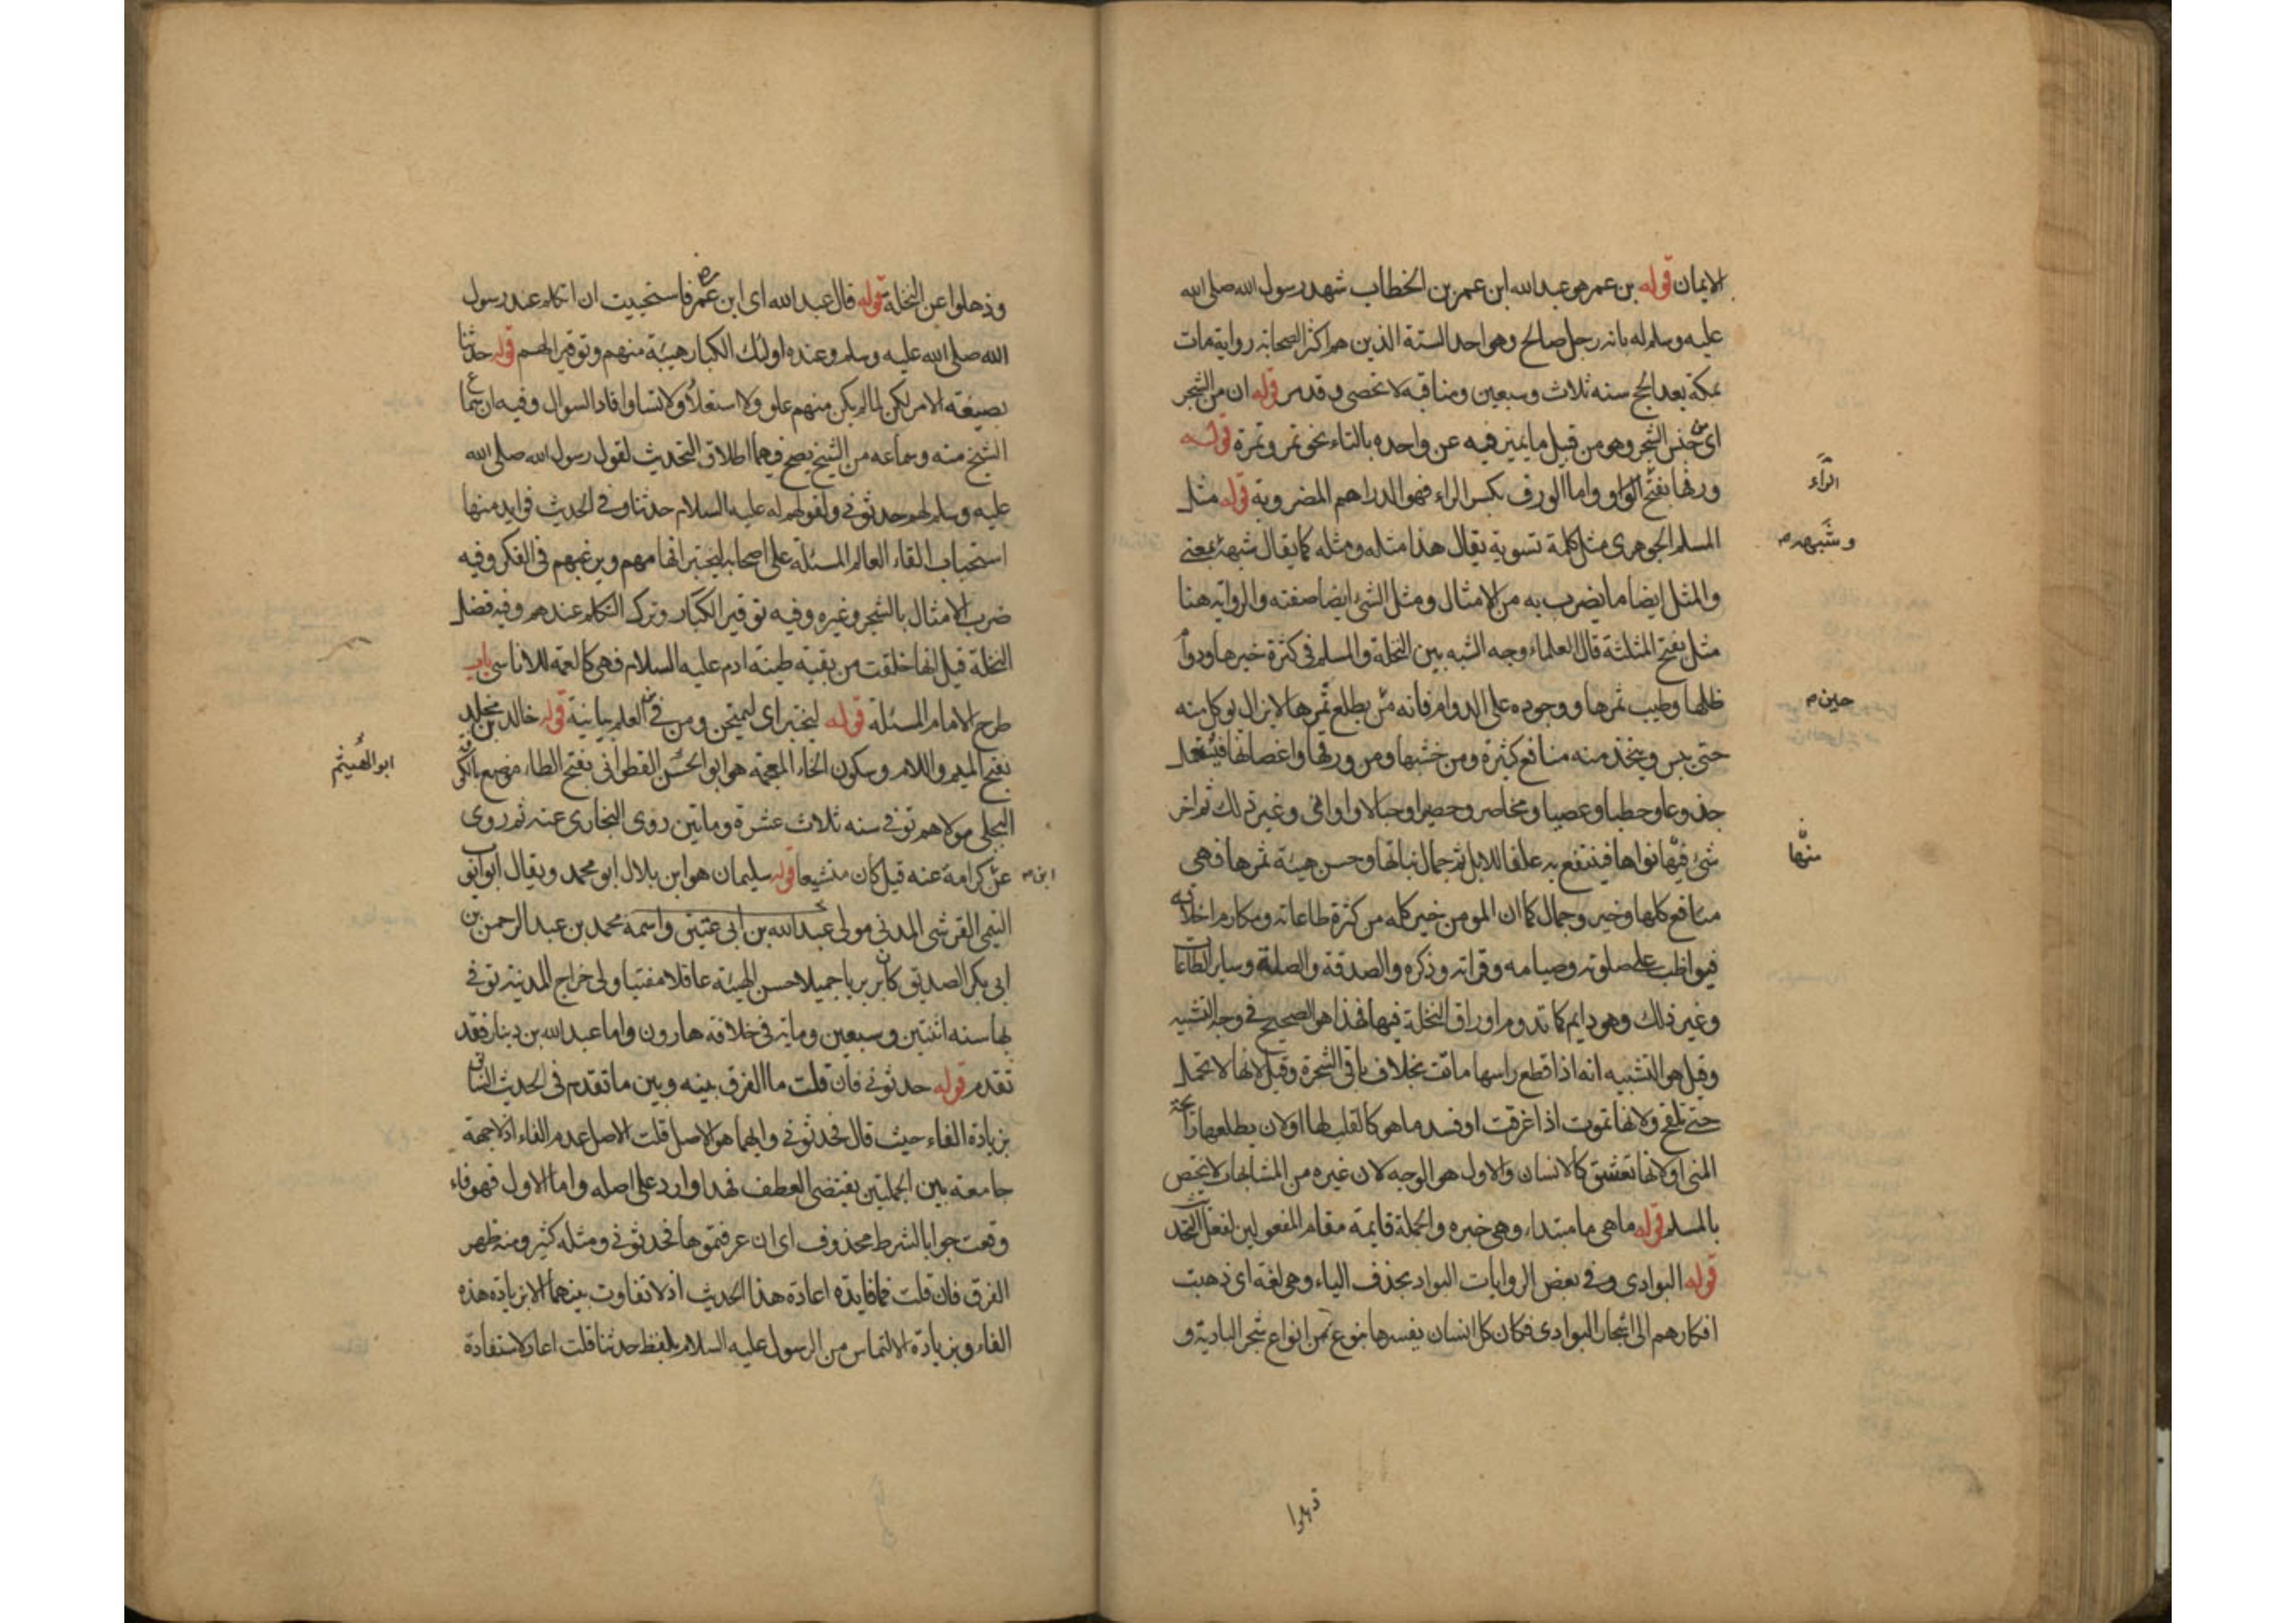 الايمان قوله بن عمر هو عبد الله ابن عمر بن الخطاب شهد رسول الله صلى الله
عليه وسلم له بانه رجل صالح وهو احد الستة الذين هم اكثر الصحابة رواية مات
بمكة بعد الحج سنه ثلاث وسبعين ومناقبه لا تحصى وقد مر قوله ان من الشجر
اى من جنس الشجر وهو من قبيل ما يميز فيه عن واحده بالتاء نحو تمر وتمرة قوله
ورقها بفتح الواو واما الورق بكسر الراء فهو الدراهم المضروبة قوله مثل
المسلم الجوهرى مثل كلمة تسوية يقال هذا مثله ومثله كما يقال شبهه بمعنى
والمثل ايضا ما يضرب به من الامثال ومثل الشئ ايضا صفته والرواية هنا
مثل بفتح المثلثة قال العلماء وجه الشبه بين النخلة والمسلم فى كثرة خيرها ودوام
ظلها وطيب ثمرها ووجوده على الدوام فانه من يطلع ثمرها لا يزال يوكل منه
حتى يبس ويتخذ منه منافع كثيرة ومن خشبها ومن ورقها واغصانها فيستعمل
جذوعا وحطبا وعصيا ومخاصر وحصرا وحبالا واوانى وغير ذلك ثم اخر
شئ فيها نواها فينتفع به علفا للابل ثم جمال نباتها وحسن هيئة ثمرها فهى
منافع كلها وخير وجمال كما ان المومن خير كله من كثرة طاعاته ومكارم اخلاقه
فيواظب على صلوته وصيامه وقراته وذكره والصدقة والصلة وساير الطاعات
وغير ذلك وهو دايم كما تدوم اوراق النخلة فيها فهذا هو الصحيح فى وجه التشبيه
وقيل هو التشبيه انه اذا قطع راسها ماتت بخلاف باقى الشجرة وقيل لانها لا تحمل
حتى تلقح ولانها تموت اذا غرقت او فسد ما هو كالقلب لها او لان لطلعها رائحة
المنى او لانها تعشق كالانسان والاول هو الوجه لان غيره من المشابهات لا يختص
بالمسلم قوله ما هى ما مبتداء وهى خبره والجملة قايمة مقام المفعولين لفعل التحديث
قوله البوادى وفى بعض الروايات البواد بحذف الياء وهى لغة اى ذهبت
افكارهم الى اشجار البوادى فكان كل انسان يفسرها بنوع من انواع شجر البادية و
الرآء
وشبهه م
حين م
منها
وذهلوا عن النخلة قوله قال عبد الله اى ابن عمر فاستحييت ان اتكلم عند رسول
الله صلى الله عليه وسلم وعنده اولئك الكبار هيبة منهم وتوقيرا لهم قوله حدثنا
بصيغة الامر لكن لما لم يكن منهم علو ولا استعلاء ولا تساو افاد السوال وفيه ان سماع
الشيخ منه وسماعه من الشيخ يصح فيهما اطلاق التحديث لقول رسول الله صلى الله
عليه وسلم لهم حدثونى ولقولهم له عليه السلام حدثنا وفى الحديث فوايد منها
استحباب القاء العالم المسئلة على اصحابه ليختبر افهامهم ويرغبهم فى الفكر وفيه
ضرب الامثال بالشجر وغيره وفيه توقير الكبار وترك التكلم عندهم وفيه فضل
النخلة قيل انها خلقت من بقية طينة ادم عليه السلام فهى كالعمة للاناسى باب
طرح الامام المسئلة قوله ليختبر اى ليمتحن ومن فى من العلم بيانية قوله خالد بن مخلد
بفتح الميم واللام وسكون الخاء المعجمة هو ابو الحسن القطوانى بفتح الطاء موضع بالكوفة
البجلى مولاهم توفى سنه ثلاث عشرة وماتين روى البخارى عنه ثم روى
عن كرامة عنه قيل كان متشيعا قوله سليمان هو ابن بلال ابو محمد ويقال ابو ايوب
التيمى القرشى المدنى مولى عبد الله بن ابى عتيق واسمه محمد بن عبد الرحمن بن
ابى بكر الصديق كان بربريا جميلا حسن الهيئة عاقلا مفتيا ولى خراج المدينة توفى
بها سنه اثنتين وسبعين وماية فى خلافة هارون واما عبد الله بن دينار فقد
تقدم قوله حدثونى فان قلت ما الفرق بينه وبين ما تقدم فى الحديث الثانى
بزيادة الفاء حيث قال فحدثونى وايهما هو الاصل قلت الاصل عدم الفاء اذ لا جهة
جامعة بين الجملتين يقتضى العطف فهذا وارد على اصله واما الاول فهو فاء
وقعت جوابا لشرط محذوف اى ان عرفتموها فحدثونى ومثله كثير ومنه ظهر
الفرق فان قلت فما فايدة اعادة هذا الحديث اذ لا تفاوت بينهما الا بزيادة هذه
الفاء وبزيادة الالتماس من الرسول عليه السلام بلفظ حدثنا قلت اعاد لاستفادة
ابو الهيثم
ابن م